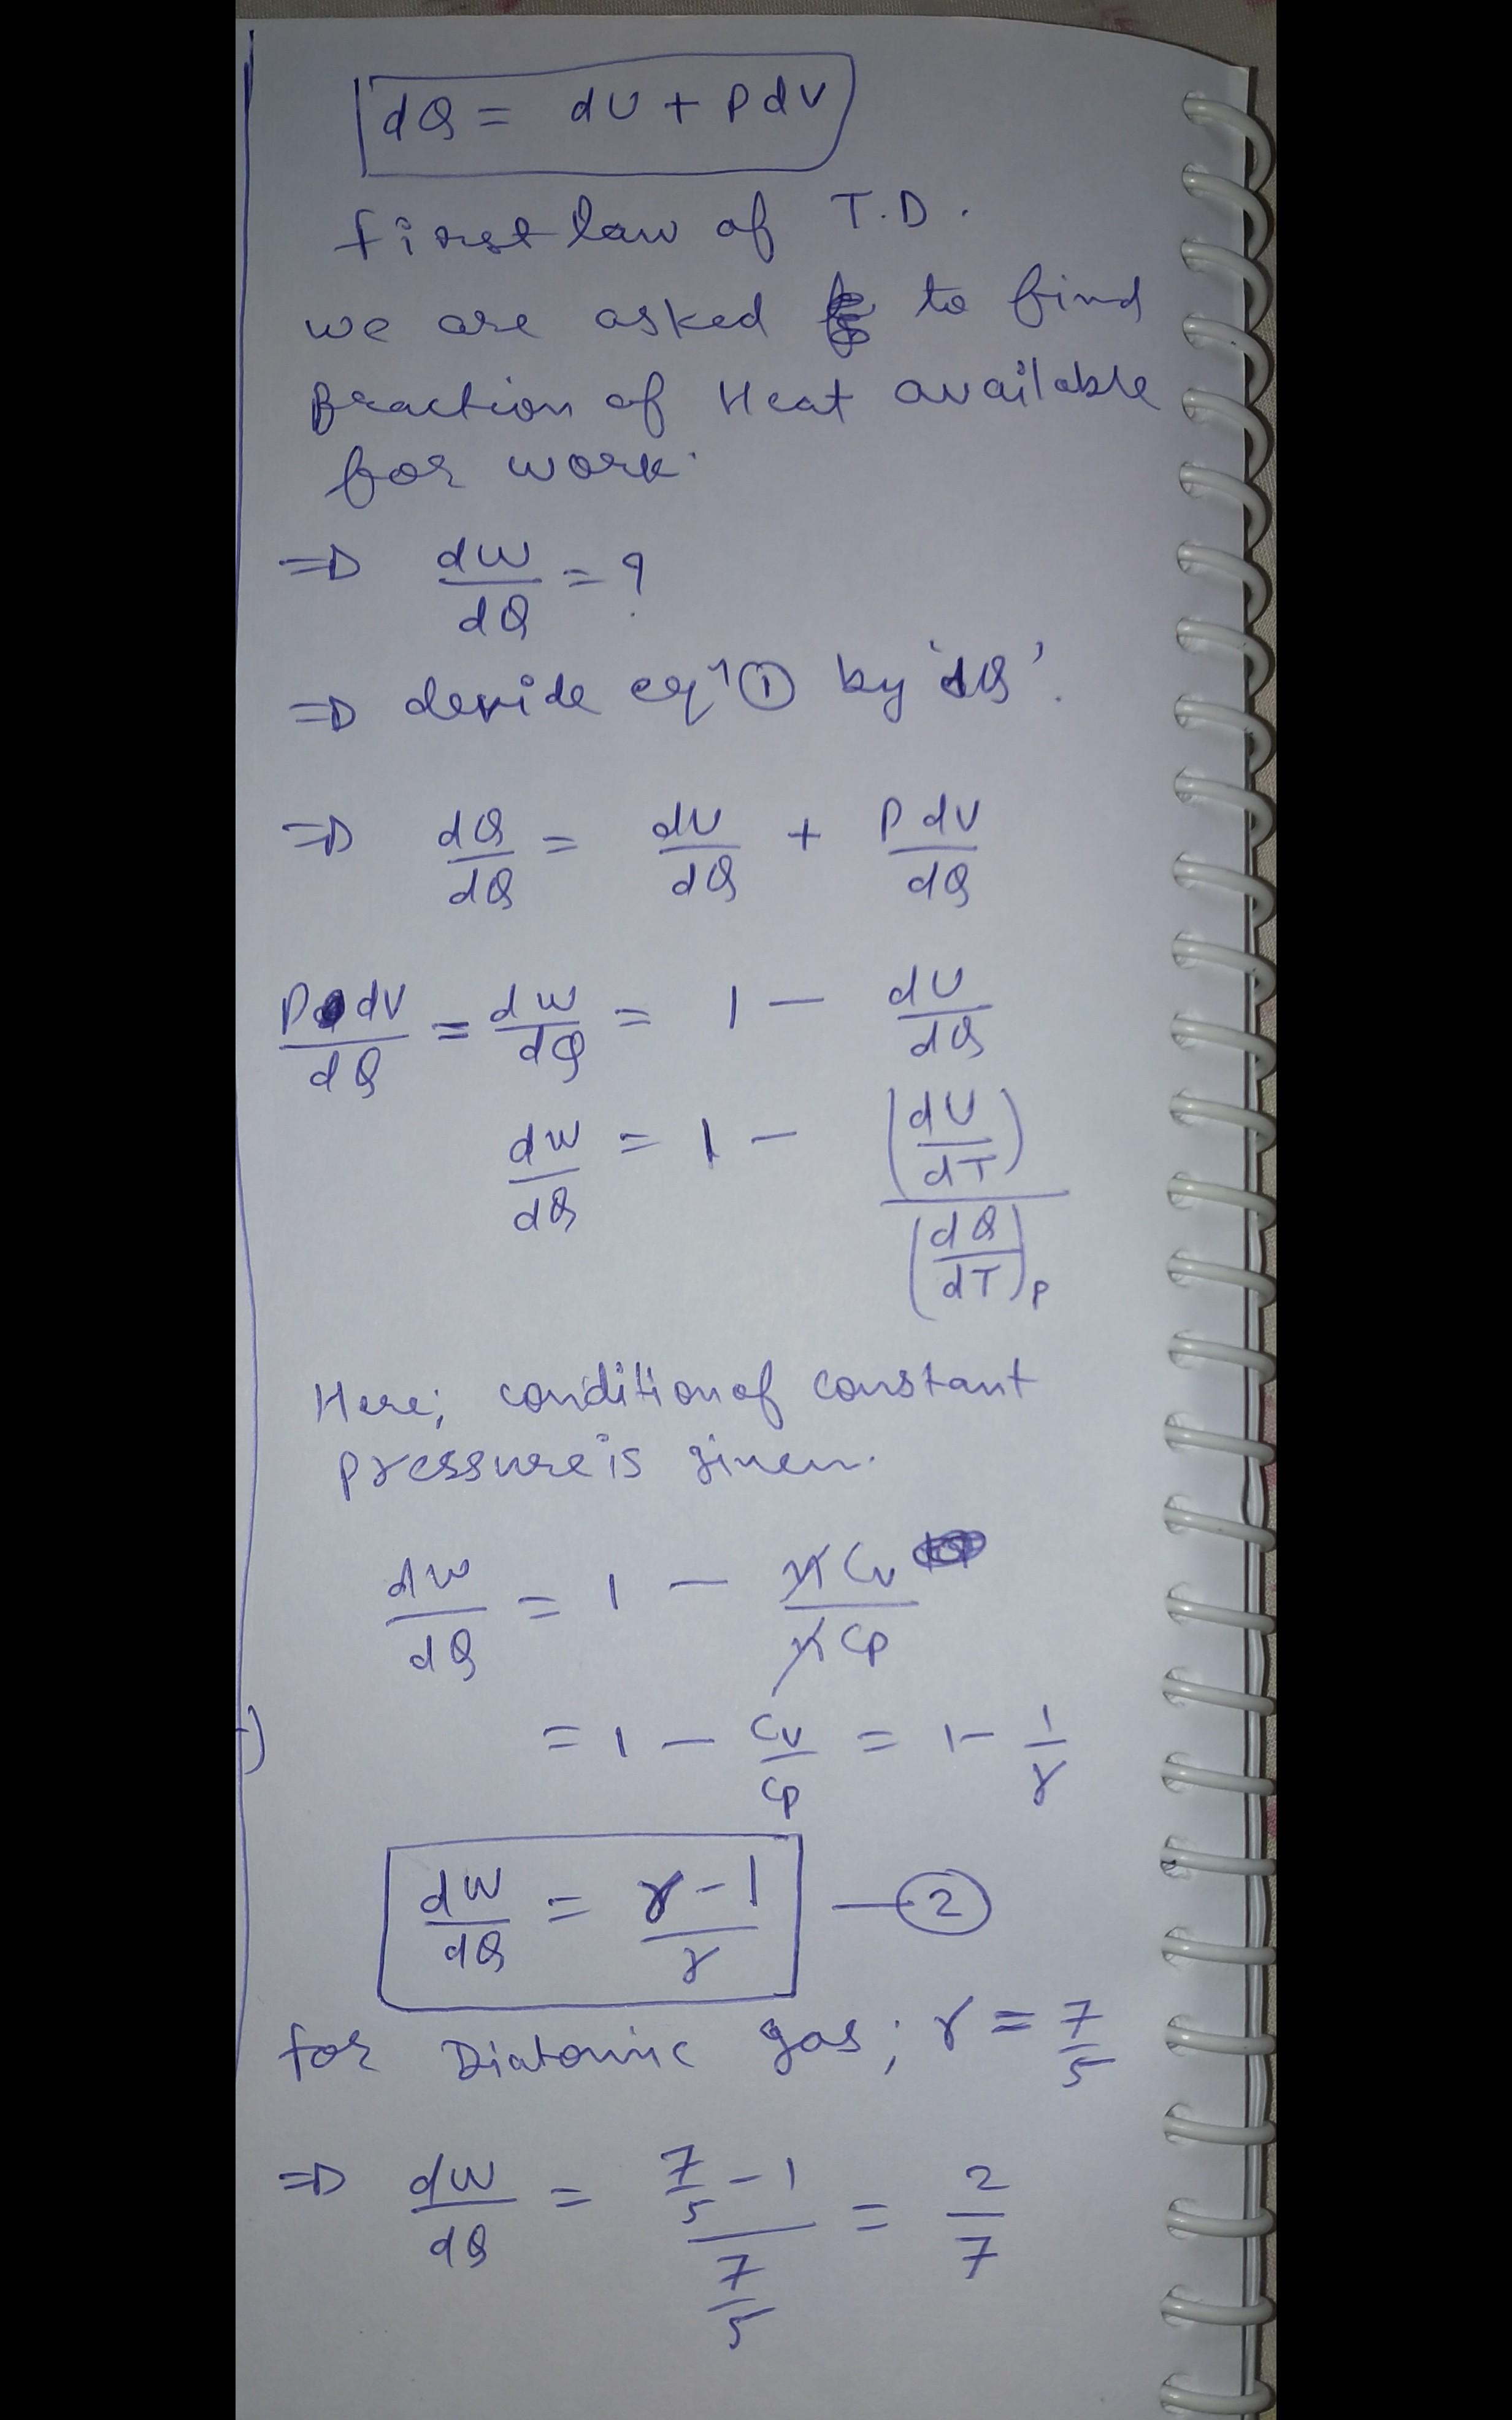 dQ = dU + PdV
first law of T.D.
we are asked to find
fraction of Heat available
for work.
⇒ dW/dQ = ?
⇒ devide eqⁿ ① by 'dQ'.
⇒ dQ/dQ = dU/dQ + PdV/dQ
PdV/dQ = dW/dQ = 1 - dU/dQ
dW/dQ = 1 - (dU/dT)/(dQ/dT)P
Here; condition of constant
pressure is given.
dW/dQ = 1 - nCv/nCp
= 1 - Cv/Cp = 1 - 1/γ
dW/dQ = (γ-1)/γ —②
for Diatomic gas; γ = 7/5
⇒ dW/dQ = (7/5 - 1)/(7/5) = 2/7